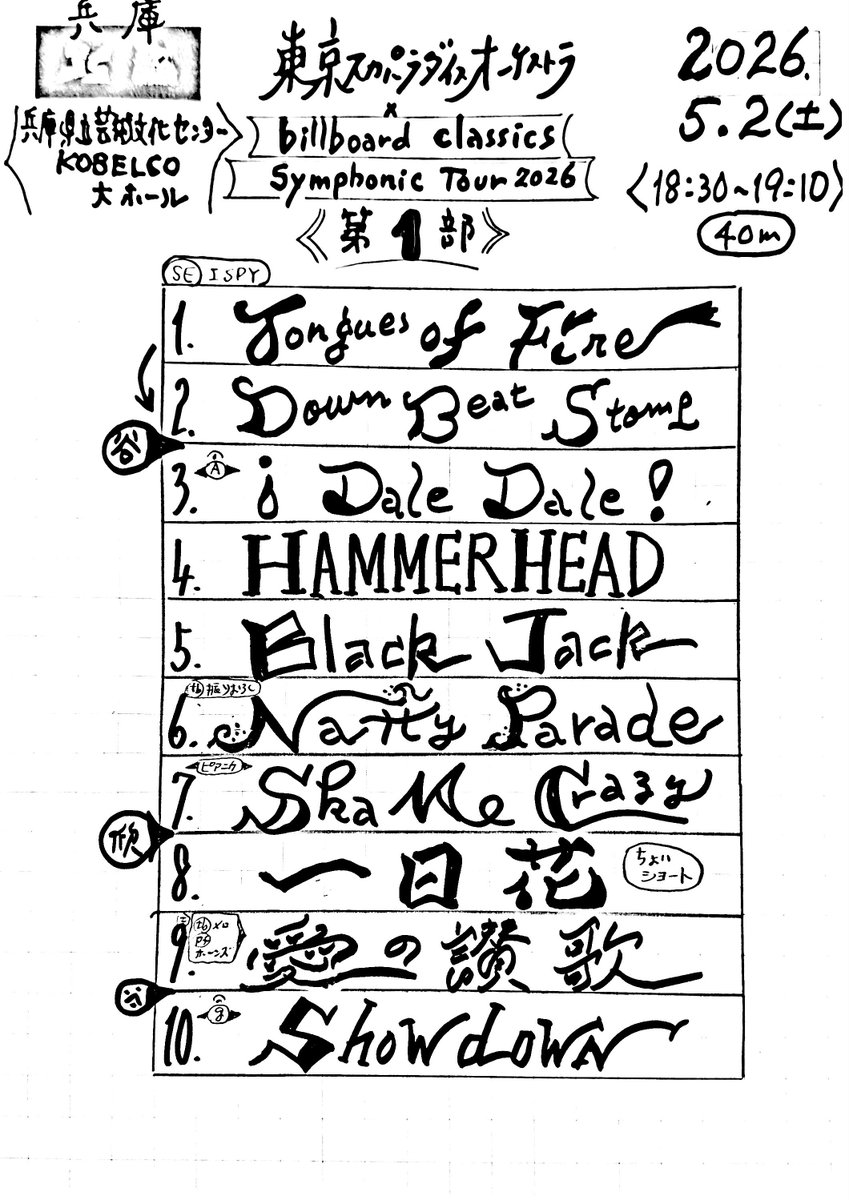 兵庫
兵庫県立芸術文化センター
KOBELCO
大ホール
東京スカパラダイスオーケストラ
×
billboard classics
Symphonic Tour 2026
《第1部》
2026.
5.2(土)
〈18:30~19:10〉
40m
SE I SPY
1. Tongues of Fire
2. Down Beat Stomp
谷
3. A ¡Dale Dale!
4. HAMMERHEAD
5. Black Jack
6. Natty Parade
ピアニカ
7. Ska Me Crazy
欣
8. 一日花 ちょいショート
9. 愛の讃歌
メロ
ホーンズ
谷
10. g Showdown